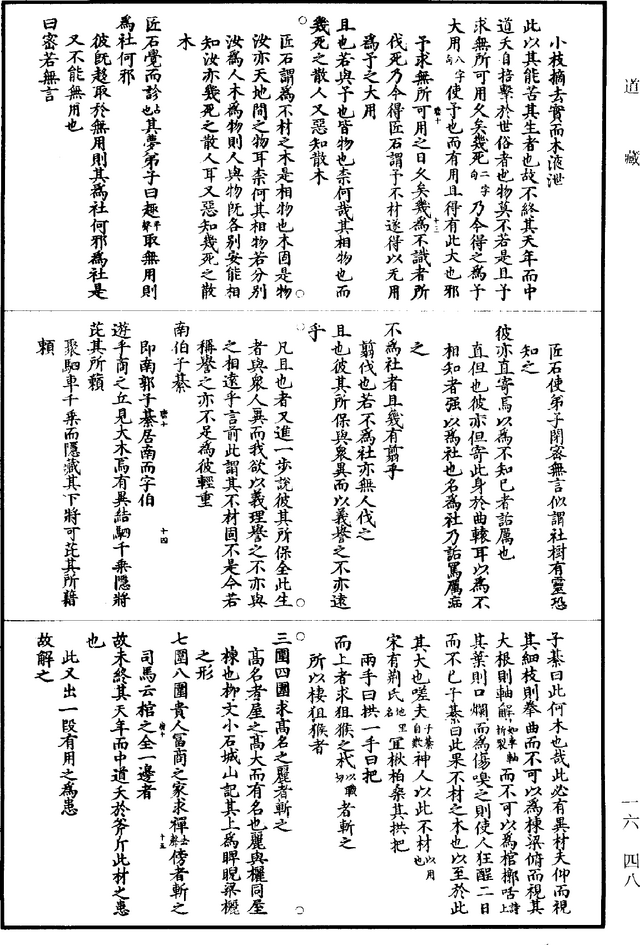 道藏
小枝摘去實而木液泄
此以其能苦其生者也故不終其天年而中
道夭自掊擊於世俗者也物莫不若是且予
求無所可用久矣幾死二字句乃今得之為予
大用八字句使予也而有用且得有此大也邪
予求無所可用之日久矣幾為不識者所
伐死乃今得匠石謂予不材遂得以无用
為予之大用
且也若與予也皆物也柰何哉其相物也而
幾死之散人又惡知散木
匠石謂為不材之木是相物也木固是物
汝亦天地間之物耳柰何其相物若分別
汝為人木為物則人與物既各別安能相
知汝亦幾死之散人耳又惡知幾死之散
木
匠石覺而診占也其夢弟子曰趣平聲取無用則
為社何邪
彼既趨取於無用則其為社何邪為社是
又不能無用也
曰密若無言
匠石使弟子閉密無言似謂社樹有靈恐
知之
彼亦直寄焉以為不知已者詬厲也
直但也彼亦但寄此身於曲轅耳以為不
相知者强以為社也名為社乃詬罵厲病
之
不為社者且幾有翦乎
翦伐也若不為社亦無人伐之
且也彼其所保與衆異而以義譽之不亦遠
乎
凡且也者又進一步說彼其所保全此生
者與衆人異而我欲以義理譽之不亦與
之相遠乎言前此謂其不材固不是今若
稱譽之亦不足為彼輕重
南伯子綦
即南郭子綦居南而字伯
遊乎商之丘見大木焉有異結駟千乘隱將
芘其所藾
聚駟車千乘而隱藏其下將可芘其所藉
賴
子綦曰此何木也哉此必有異材夫仰而視
其細枝則拳曲而不可以為棟梁俯而視其
大根則軸解如車軸折裂而不可以為棺槨咶上詩
其葉則口爛而為傷嗅之則使人狂醒二日
而不已子綦曰此果不材之木也以至於此
其大也嗟夫子綦自歎神人以此不材以用也
宋有荊氏地里名宜楸柏桑其拱把
兩手曰拱一手曰把
而上者求狙猴之杙者斬之
所以棲狙猴者
三圍四圍求高名之麗者斬之
高名者屋之高大而有名也麗與欐同屋
棟也柳文小石城山記其上為睥睨梁欐
之形
七圍八圍貴人富商之家求禪傍者斬之
司馬云棺之全一邊者
故未終其天年而中道夭於斧斤此材之患
也
此又出一段有用之為患
故解之
一六四八